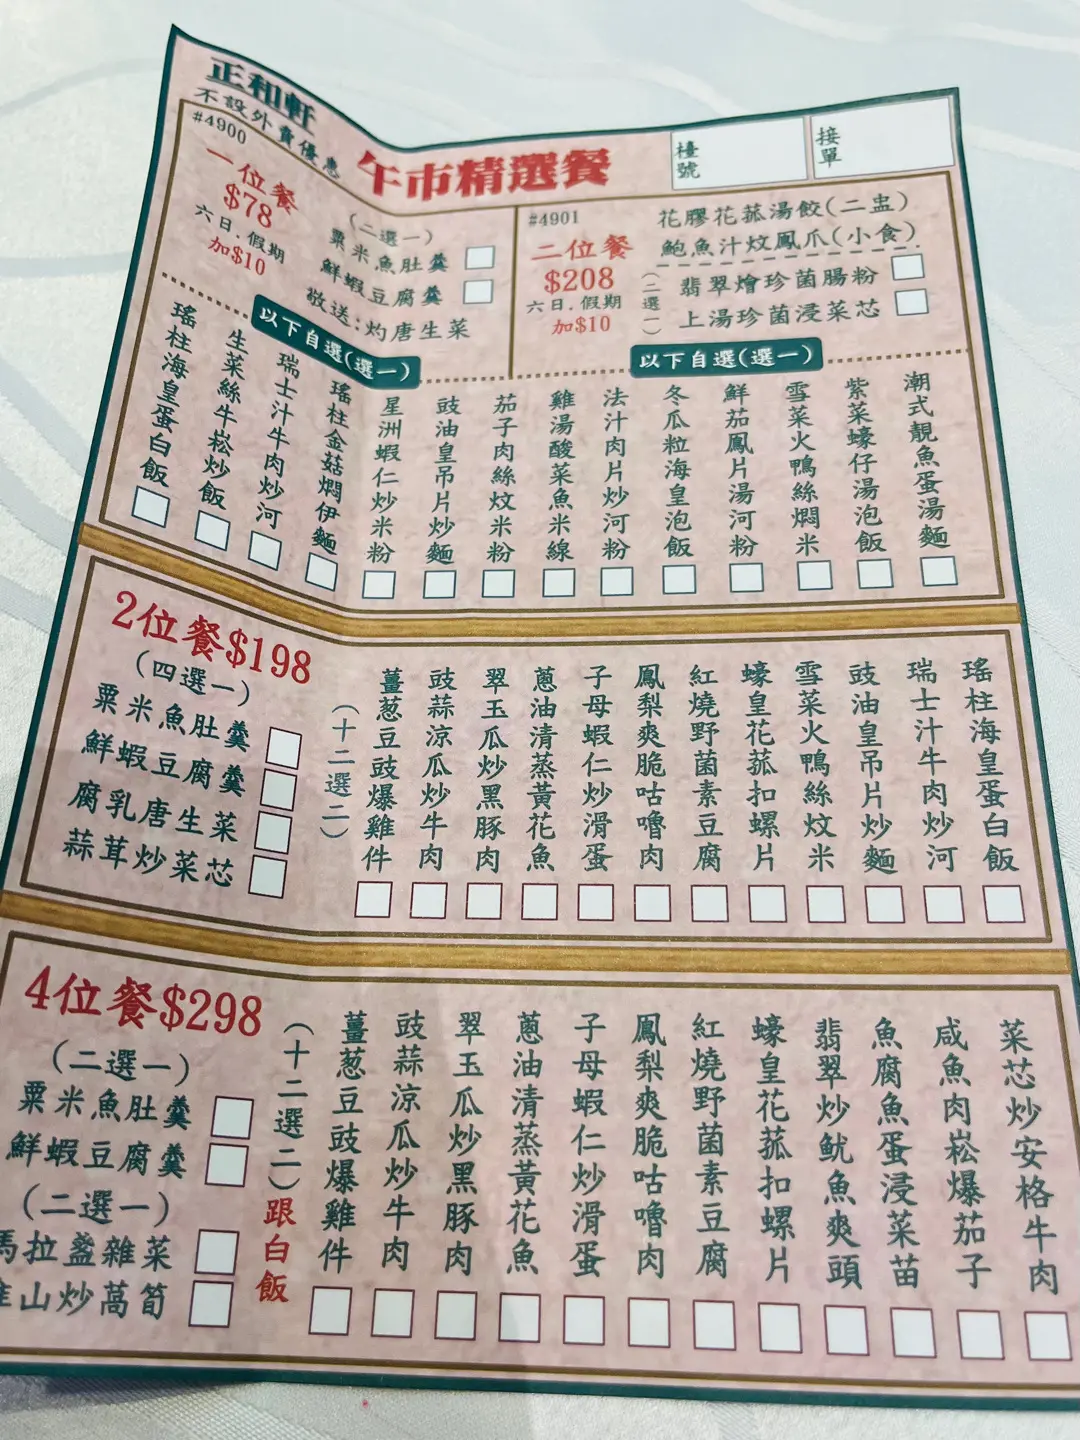 正和軒
不設外賣優惠
午市精選餐
檯號
接單
#4900
一位餐
$78
六日.假期
加$10
(二選一)
粟米魚肚羹
鮮蝦豆腐羹
敬送:灼唐生菜
#4901
二位餐
$208
六日.假期
加$10
花膠花菰湯餃(二盅)
鮑魚汁炆鳳爪(小食)
(二選一)
翡翠燴珍菌腸粉
上湯珍菌浸菜芯
以下自選(選一)
以下自選(選一)
瑤柱海皇蛋白飯
生菜絲牛崧炒飯
瑞士汁牛肉炒河
瑤柱金菇燜伊麵
星洲蝦仁炒米粉
豉油皇吊片炒麵
茄子肉絲炆米粉
雞湯酸菜魚米線
法汁肉片炒河粉
冬瓜粒海皇泡飯
鮮茄鳳片湯河粉
雪菜火鴨絲燜米
紫菜蠔仔湯泡飯
潮式靚魚蛋湯麵
2位餐$198
(四選一)
粟米魚肚羹
鮮蝦豆腐羹
腐乳唐生菜
蒜茸炒菜芯
(十二選二)
薑葱豆豉爆雞件
豉蒜涼瓜炒牛肉
翠玉瓜炒黑豚肉
蔥油清蒸黃花魚
子母蝦仁炒滑蛋
鳳梨爽脆咕嚕肉
紅燒野菌素豆腐
蠔皇花菰扣螺片
雪菜火鴨絲炆米
豉油皇吊片炒麵
瑞士汁牛肉炒河
瑤柱海皇蛋白飯
4位餐$298
(二選一)
粟米魚肚羹
鮮蝦豆腐羹
(二選一)
馬拉盞雜菜
山炒萵筍
(十二選二)跟白飯
薑葱豆豉爆雞件
豉蒜涼瓜炒牛肉
翠玉瓜炒黑豚肉
蔥油清蒸黃花魚
子母蝦仁炒滑蛋
鳳梨爽脆咕嚕肉
紅燒野菌素豆腐
蠔皇花菰扣螺片
翡翠炒魷魚爽頭
魚腐魚蛋浸菜苗
咸魚肉崧爆茄子
菜芯炒安格牛肉